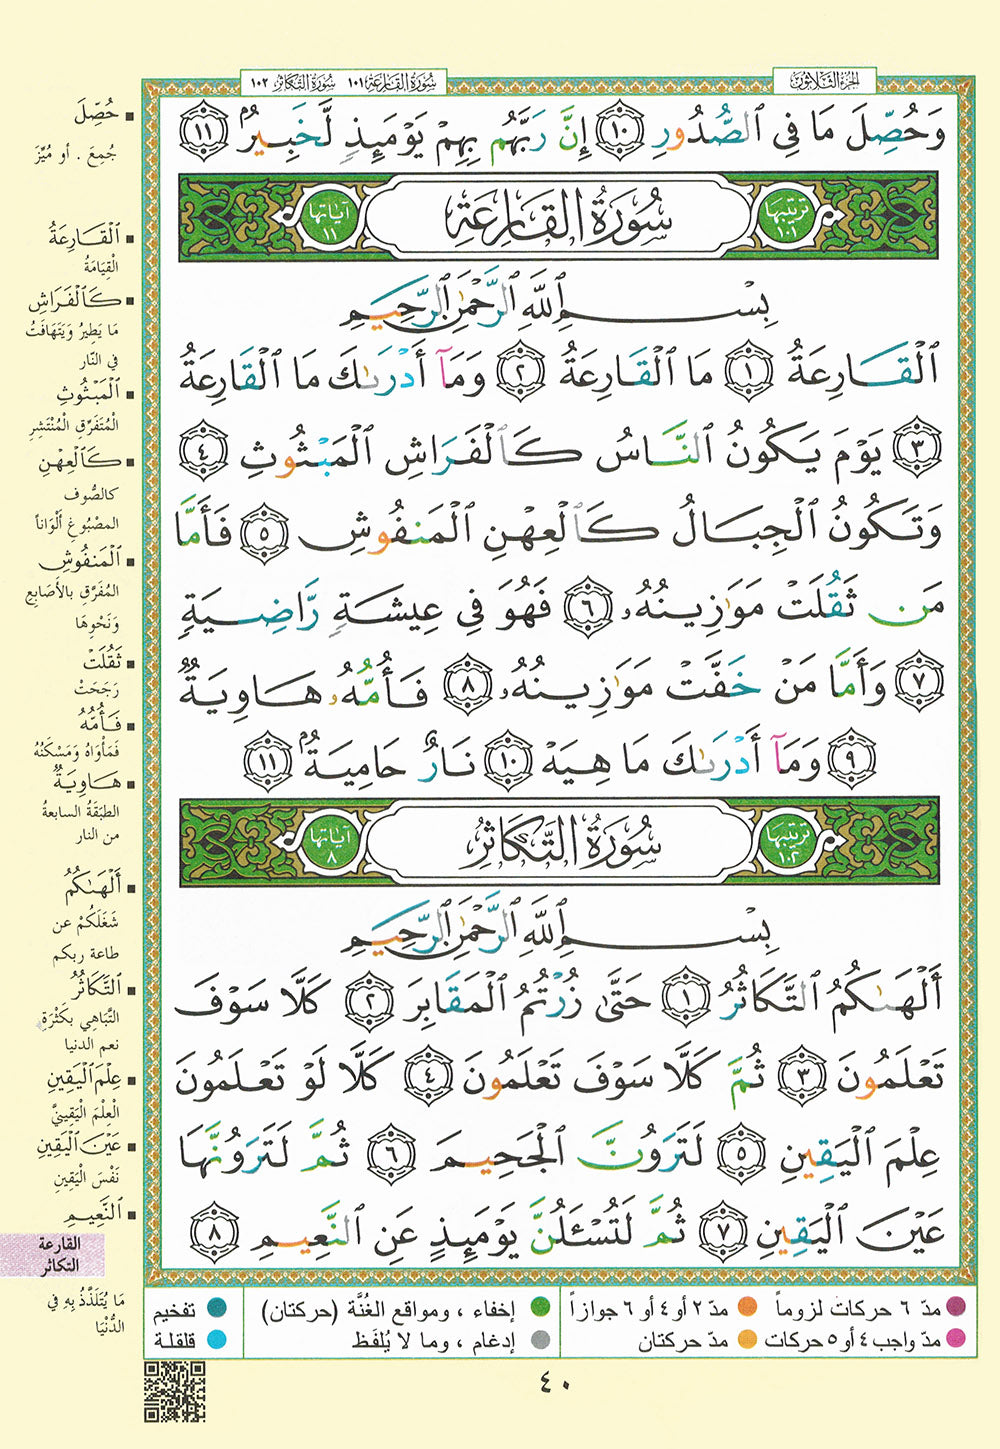 الجزء الثلاثون
سورة القارعة ١٠١ سورة التكاثر ١٠٢
وَحُصِّلَ مَا فِى ٱلصُّدُورِ ١٠ إِنَّ رَبَّهُم بِهِمْ يَوْمَئِذٍ لَّخَبِيرٌۢ ١١
ترتيبها ١٠١ سُورَةُ القَارِعَةِ آياتها ١١
بِسْمِ ٱللَّهِ ٱلرَّحْمَٰنِ ٱلرَّحِيمِ
ٱلْقَارِعَةُ ١ مَا ٱلْقَارِعَةُ ٢ وَمَآ أَدْرَىٰكَ مَا ٱلْقَارِعَةُ
٣ يَوْمَ يَكُونُ ٱلنَّاسُ كَٱلْفَرَاشِ ٱلْمَبْثُوثِ ٤
وَتَكُونُ ٱلْجِبَالُ كَٱلْعِهْنِ ٱلْمَنفُوشِ ٥ فَأَمَّا
مَن ثَقُلَتْ مَوَٰزِينُهُۥ ٦ فَهُوَ فِى عِيشَةٍ رَّاضِيَةٍ
٧ وَأَمَّا مَنْ خَفَّتْ مَوَٰزِينُهُۥ ٨ فَأُمُّهُۥ هَاوِيَةٌ
٩ وَمَآ أَدْرَىٰكَ مَا هِيَهْ ١٠ نَارٌ حَامِيَةٌۢ ١١
ترتيبها ١٠٢ سُورَةُ التَّكَاثُرِ آياتها ٨
بِسْمِ ٱللَّهِ ٱلرَّحْمَٰنِ ٱلرَّحِيمِ
أَلْهَىٰكُمُ ٱلتَّكَاثُرُ ١ حَتَّىٰ زُرْتُمُ ٱلْمَقَابِرَ ٢ كَلَّا سَوْفَ
تَعْلَمُونَ ٣ ثُمَّ كَلَّا سَوْفَ تَعْلَمُونَ ٤ كَلَّا لَوْ تَعْلَمُونَ
عِلْمَ ٱلْيَقِينِ ٥ لَتَرَوُنَّ ٱلْجَحِيمَ ٦ ثُمَّ لَتَرَوُنَّهَا
عَيْنَ ٱلْيَقِينِ ٧ ثُمَّ لَتُسْـَٔلُنَّ يَوْمَئِذٍ عَنِ ٱلنَّعِيمِ ٨
حُصِّلَ
جُمِعَ . أو مُيِّزَ
ٱلْقَارِعَةُ
الْقِيَامَةُ
كَٱلْفَرَاشِ
مَا يَطِيرُ وَيَتَهَافَتُ
في النّار
ٱلْمَبْثُوثِ
الْمُتَفَرِّقِ الْمُنْتَشِرِ
كَٱلْعِهْنِ
كالصُّوف
المصْبُوغِ أَلْوَاناً
ٱلْمَنفُوشِ
المُفَرَّقِ بالأَصَابِعِ
وَنَحْوِهَا
ثَقُلَتْ
رَجَحَتْ
فَأُمُّهُ
فَمَأْوَاهُ وَمَسْكَنُهُ
هَاوِيَةٌ
الطبَقَةُ السابعةُ
من النار
أَلْهَىٰكُمُ
شَغَلَكُمْ عن
طاعة ربكم
ٱلتَّكَاثُرُ
التَّبَاهِي بكَثْرَةِ
نعم الدنيا
عِلْمَ ٱلْيَقِينِ
الْعِلْمَ الْيَقِينيَّ
عَيْنَ ٱلْيَقِينِ
نَفْسَ الْيَقِينِ
ٱلنَّعِيمِ
القارعة
التكاثر
مَا يُتَلَذَّذُ بِهِ في
الدُّنْيَا
مدّ ٦ حركات لزوماً مدّ ٢ أو ٤ أو ٦ جوازاً إخفاء ، ومواقع الغُنَّة (حركتان) تفخيم
مدّ واجب ٤ أو ٥ حركات مدّ حركتان إدغام ، وما لا يُلفَظ قلقلة
٤٠